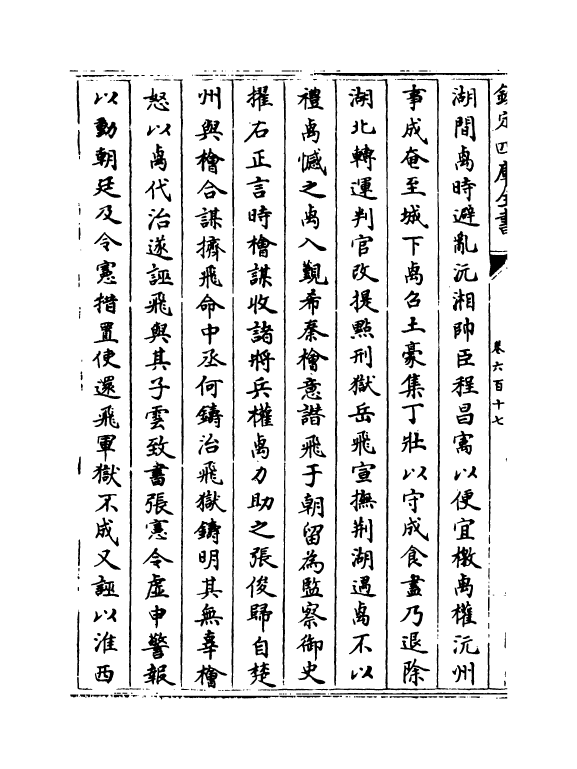 欽定四庫全書
卷六百十七
湖間卨時避亂沅湘帥臣程昌㝢以便宜檄卨權沅州
事成奄至城下卨召土豪集丁壯以守成食盡乃退除
湖北轉運判官改提點刑獄岳飛宣撫荆湖遇卨不以
禮卨憾之卨入覲希秦檜意譖飛于朝留為監察御史
擢右正言時檜謀收諸將兵權卨力助之張俊歸自楚
州與檜合謀擠飛命中丞何鑄治飛獄鑄明其無辜檜
怒以卨代治遂誣飛與其子雲致書張憲令虛申警報
以動朝廷及令憲措置使還飛軍獄不成又誣以淮西